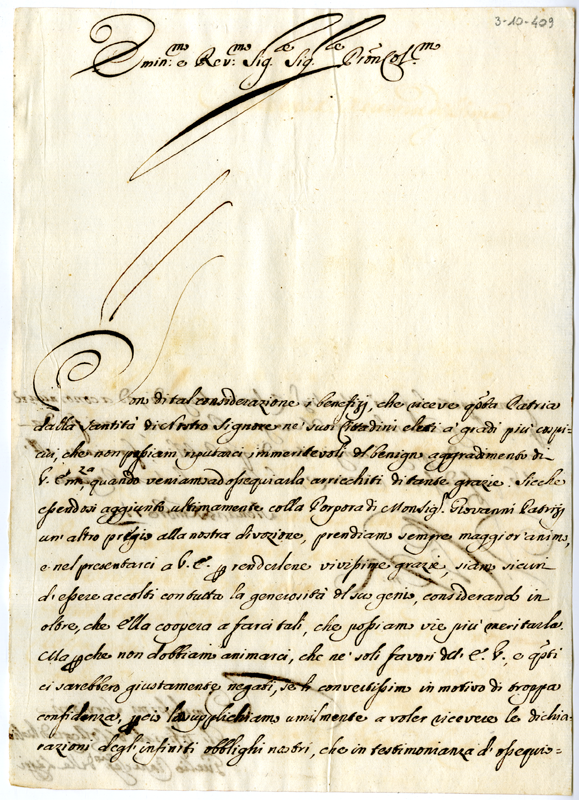 3-10-409
Emin:mo e Rev:mo Sig:re Sig:re Pron Col:mo
Son di tal considerazione i benefizj, che riceve q̃sta Patria
dalla Santità di Nostro Signore ne' suoi Cittadini eletti a' gradi più cospi-
cui, che non possiam riputarci immeritevoli del benign aggradimento di
V. Em:za quando veniam ad ossequiarla arricchiti di tante grazie. Sicche
essendosi aggiunto ultimamente colla Porpora di Monsig.r Giovanni Patrizj
un' altro pregio alla nostra divozione, prendiam sempre maggior animo,
e nel presentarci a V. E. p renderlene vivissime grazie, siam sicuri
d'essere accolti con tutta la generosità del suo genio, considerand in
oltre, che Ella coopera a farci tali, che possiam vie più meritarla.
Ma p che non dobbiam animarci, che ne' soli favori dell' E. V., e q̃sti
ci sarebbero giustamente negati, se li convertissim in motivo di troppa
confidenza, p ciò la supplichiam umilmente a voler ricevere le dichia-
razioni degl'infiniti obblighi nostri, che in testimonianza d' ossequio=